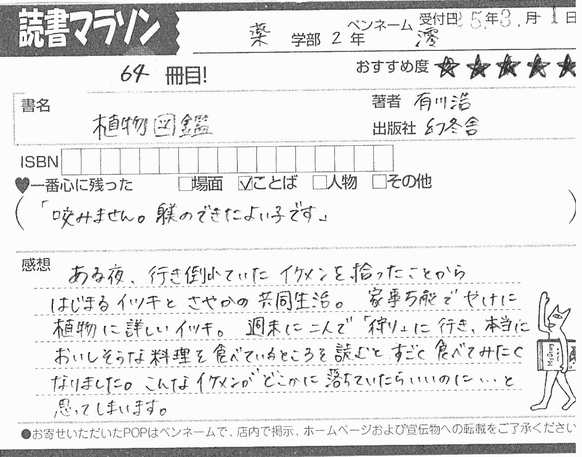 読書マラソン
薬 学部 2 年 ペンネーム 澪 受付日 25年3.月-1日
64 冊目! おすすめ度 ★★★★★
書名 植物図鑑
著者 有川浩
出版社 幻冬舎
ISBN
♥一番心に残った □場面 ☑ことば □人物 □その他
(「咬みません。躾のできたよい子です」)
感想
ある夜、行き倒れていたイケメンを拾ったことから
はじまるイツキとさやかの共同生活。 家事万能でやけに
植物に詳しいイツキ。 週末に二人で「狩り」に行き、本当に
おいしそうな料理を食べているところを読むとすごく食べてみたく
なりました。こんなイケメンがどこかに落ちていたらいいのに…と
思ってしまいます。
●お寄せいただいたPOPはペンネームで、店内で掲示、ホームページおよび宣伝物への転載をご了承ください